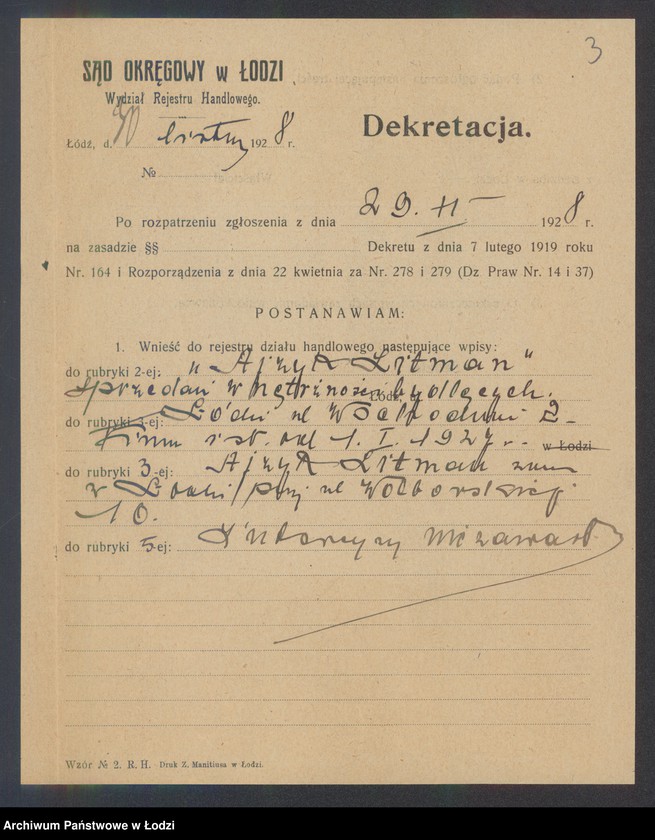 3
SĄD OKRĘGOWY w ŁODZI
Wydział Rejestru Handlowego.
Dekretacja.
Łódź, d. 30 listop 1928 r.
№
Po rozpatrzeniu zgłoszenia z dnia 29. II 1928 r.
na zasadzie §§ Dekretu z dnia 7 lutego 1919 roku
Nr. 164 i Rozporządzenia z dnia 22 kwietnia za Nr. 278 i 279 (Dz Praw Nr. 14 i 37)
POSTANAWIAM:
1. Wnieść do rejestru działu handlowego następujące wpisy:
do rubryki 2-ej: "Ajzyk Litman"
Sprzedaż wnętrzności bydlęcych.
do rubryki -ej: Łódź ul Wschodnia 2
Firma ist. od 1. I. 1927 w Łodzi
do rubryki 3-ej: Ajzyk Litman zam
w Łodzi przy ul Wolborskiej
10.
do rubryki 5-ej: nie zawarł
Wzór № 2. R. H. Druk Z. Manitiusa w Łodzi.
Archiwum Państwowe w Łodzi